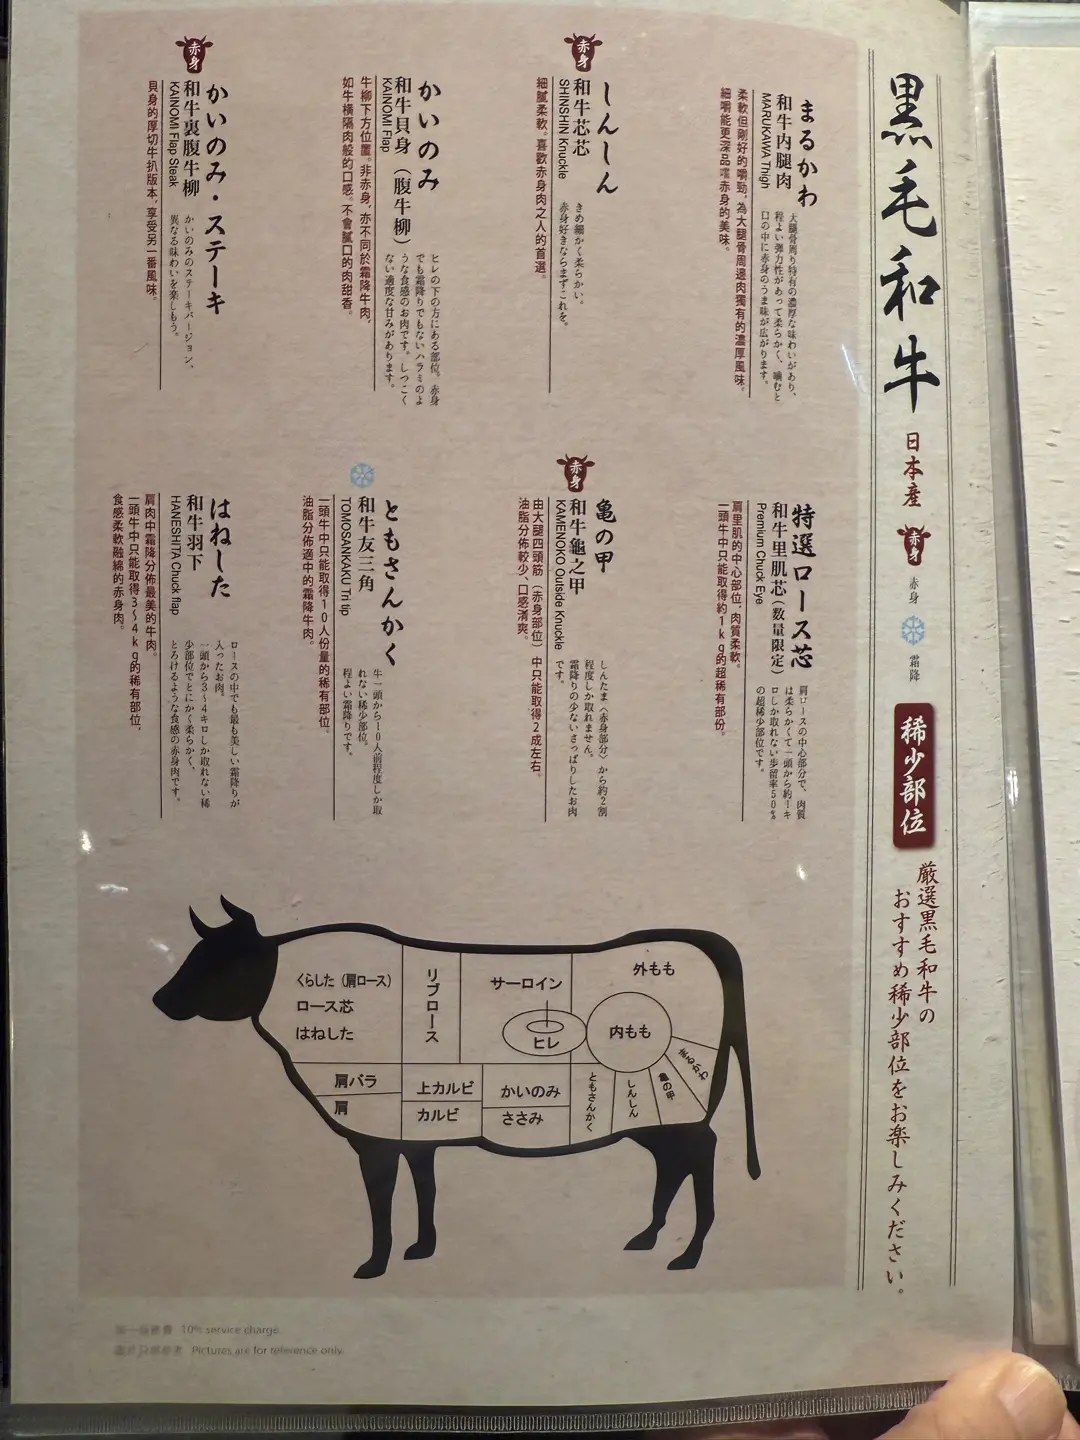 黒毛和牛
日本産
赤身
赤身
霜降
稀少部位
厳選黒毛和牛の
おすすめ稀少部位をお楽しみください。
まるかわ
和牛内腿肉
MARUKAWA Thigh
大腿骨周り特有の濃厚な味わいがあり、
程よい弾力性があって柔らかく、噛むと
口の中に赤身のうま味が広がります。
柔軟但剛好的嚼勁，為大腿骨周邊肉獨有的濃厚風味。
細嚼能更深品嚐赤身的美味。
赤身
しんしん
和牛芯芯
SHINSHIN Knuckle
きめ細かく柔らかい。
赤身好きならまずこれを。
細膩柔軟。喜歡赤身肉之人的首選。
かいのみ
和牛貝身（腹牛柳）
KAINOMI Flap
ヒレの下の方にある部位。赤身
でも霜降りでもないハラミのよ
うな食感のお肉です。しつこく
ない適度な甘みがあります。
牛柳下方位置。非赤身，亦不同於霜降牛肉，
如牛橫隔肉般的口感。不會膩口的肉甜香。
赤身
かいのみ・ステーキ
和牛裏腹牛柳
KAINOMI Flap Steak
かいのみのステーキバージョン、
異なる味わいを楽しもう。
貝身的厚切牛扒版本，享受另一番風味。
特選ロース芯
和牛里肌芯（数量限定）
Premium Chuck Eye
肩ロースの中心部分で、肉質
は柔らかくて一頭から約一キ
ロしか取れない歩留率50%
の超稀少部位です。
肩里肌的中心部位，肉質柔軟。
一頭牛中只能取得約1kg的超稀有部份。
赤身
亀の甲
和牛龜之甲
KAMENOKO Outside Knuckle
しんたま（赤身部分）から約2割
程度しか取れません。
霜降りの少ないさっぱりしたお肉
です。
由大腿四頭筋（赤身部位）中只能取得2成左右。
油脂分佈較少、口感清爽。
ともさんかく
和牛友三角
TOMOSANKAKU Tri tip
牛一頭から10人前程度しか取
れない稀少部位。
程よい霜降りです。
一頭牛中只能取得10人份量的稀有部位。
油脂分佈適中的霜降牛肉。
はねした
和牛羽下
HANESHITA Chuck flap
ロースの中でも最も美しい霜降りが
入ったお肉。
一頭から3～4キロしか取れない稀
少部位でとにかく柔らかく、
とろけるような食感の赤身肉です。
肩肉中霜降分佈最美的牛肉。
一頭牛中只能取得3～4kg的稀有部位，
食感柔軟融綿的赤身肉。
くらした（肩ロース）
ロース芯
はねした
リブロース
サーロイン
ヒレ
外もも
内もも
まるかわ
肩バラ
肩
上カルビ
カルビ
かいのみ
ささみ
ともさんかく
しんしん
亀の甲
10% service charge
Pictures are for reference only.